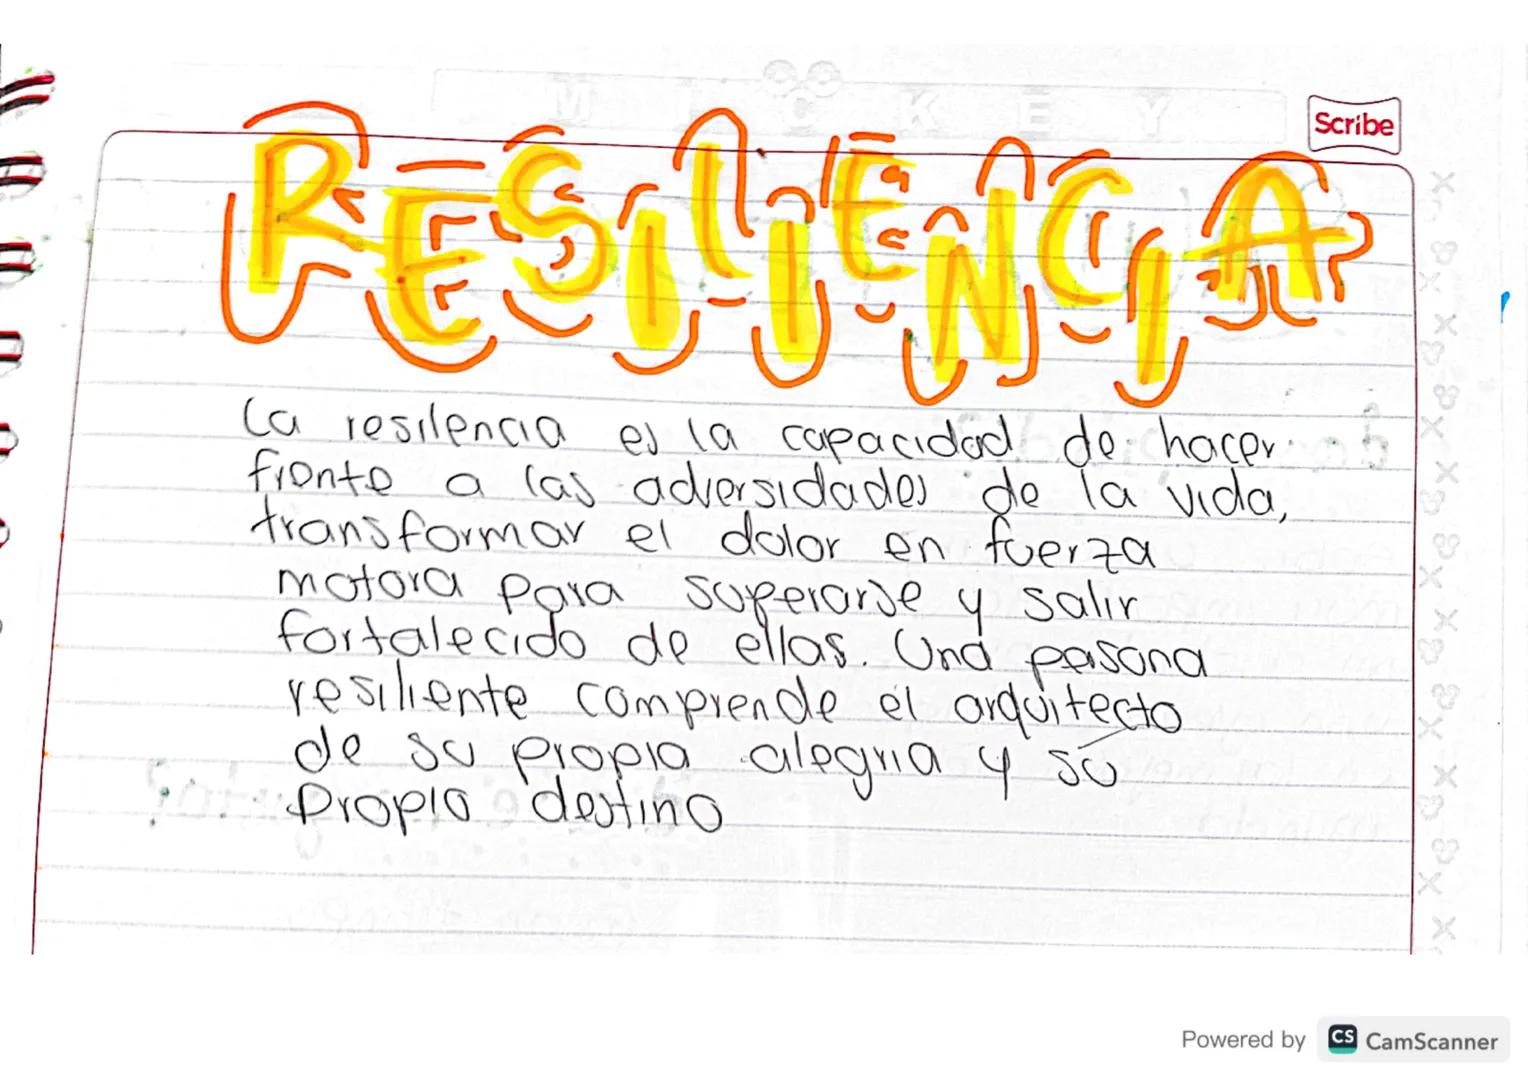 M I C K E Y
Scribe
RESILIENCIA
La resilencia es la capacidad de hacer
fronte a las adversidades de la vida,
transformar el dolor en fuerza
motora para superarse y salir
fortalecido de ellas. Una pesona
resiliente comprende el arquitecto
de su propia alegria y su
propio destino
Powered by CS CamScanner